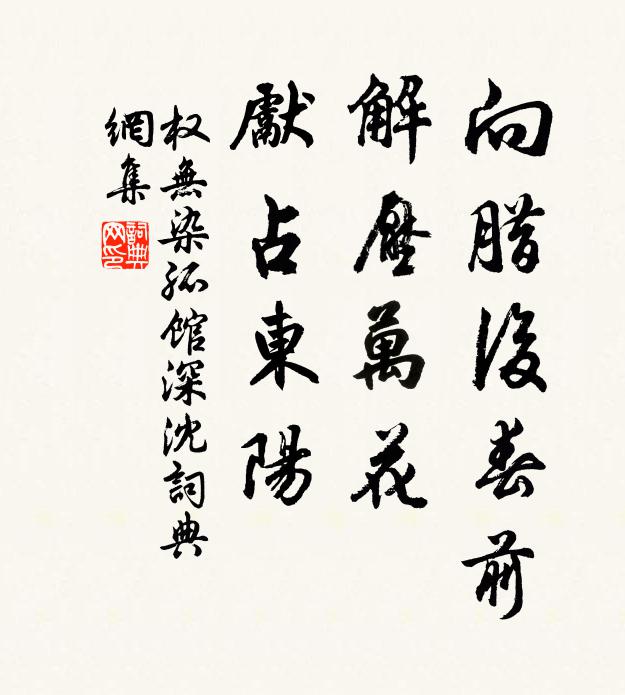 向腊後春前
解壓萬花
獻占東陽
权無染孤館深沈詞典
網集
詞典
网印